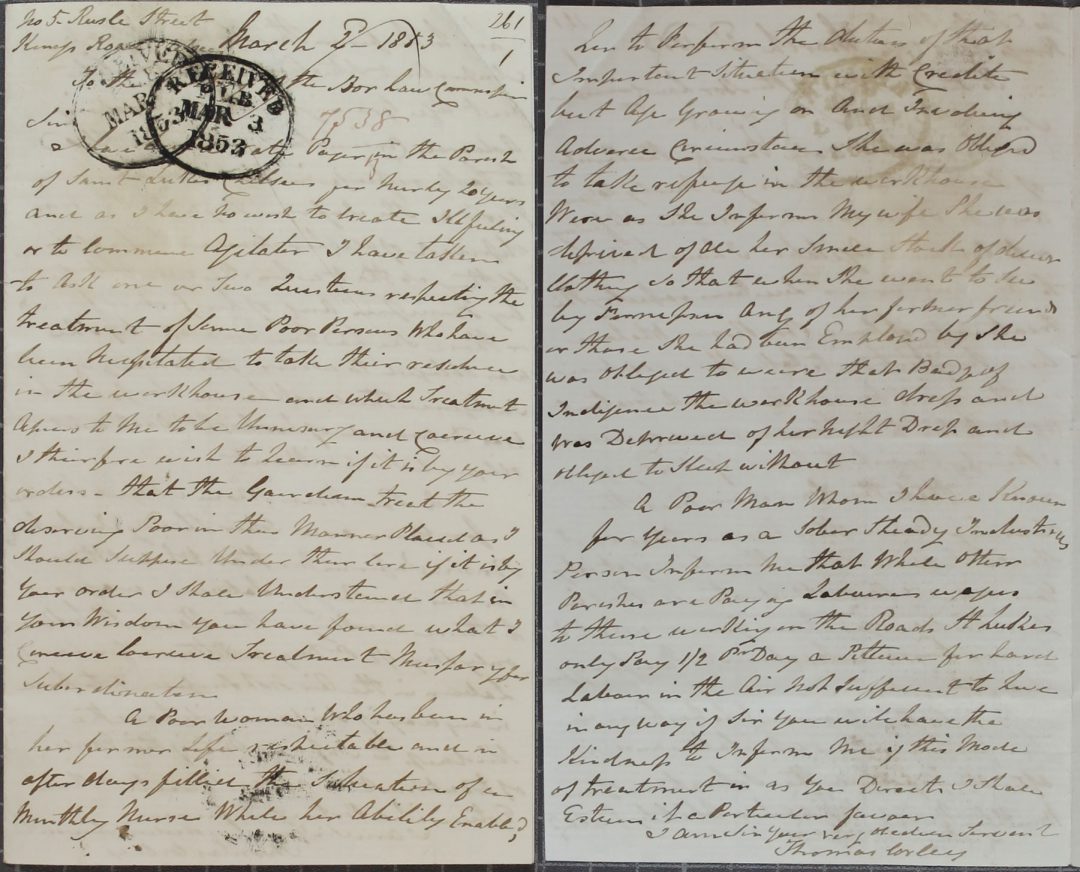 No 5 Rusle Street
Kings Road
March 2 1853
261
1
RECEIVED
MAR
1853
RECEIVED
P.L.B
MAR 3
1853
To the the Poor Law Commission
Sir
7538
I have Rate Payer in the Parish
of Saint Lukes Chelsea for nearly 20 years
and as I have no wish to create Illfeeling
or to Commence Agitater I have taken
to ask one or Two Questions respecting the
treatment of Some Poor Persons Who have
been Nesisitated to take their residence
in the workhouse and which Treatment
Apears to Me to be Unnessary and Coercive
I therefore wish to learn if it is by your
orders that the Gaurdians treat the
deserving Poor in this Manner Placed as I
Should Suppose Under their Care if it is by
Your order I Shall Understand that in
Your Wisdom you have found what I
Conceive Coercive Treatment Nessary for
Subordination
A Poor Woman Who has been in
her former Life respectable and in
after days filled the Situation of a
Monthly Nurse While her Ability Enabled
her to Perform the duties of that
Important Situation with Credite
but Age Growing on And Involving
Adverse Circumstances She was Obliged
to take refuge in the workhouse
Were as She Informs My wife She was
deprived of all her Small Stock of
Clothing so that when She went to See
by Permission Any of her former friends
or those She had been Employd by She
was obliged to weare that Badge of
Indigence the workhouse dress and
was Deprived of her Night Dress and
obliged to Sleep without
A Poor Man Whom I have Known
for Years as a Sober Steady Industrious
Person Inform Me that While Other
Parishes are Paying Labourers wages
to those working on the Roads St Lukes
only Pay 1/2 Pr Day a Pittance for hard
Labour in the Air Not Sufficent to live
in any way if Sir You will have the
Kindness to Inform Me if this Mode
of treatment is as You Direct I Shall
Esteem it a Particular favour
I am Sir your very obedient Servant
Thomas Corley